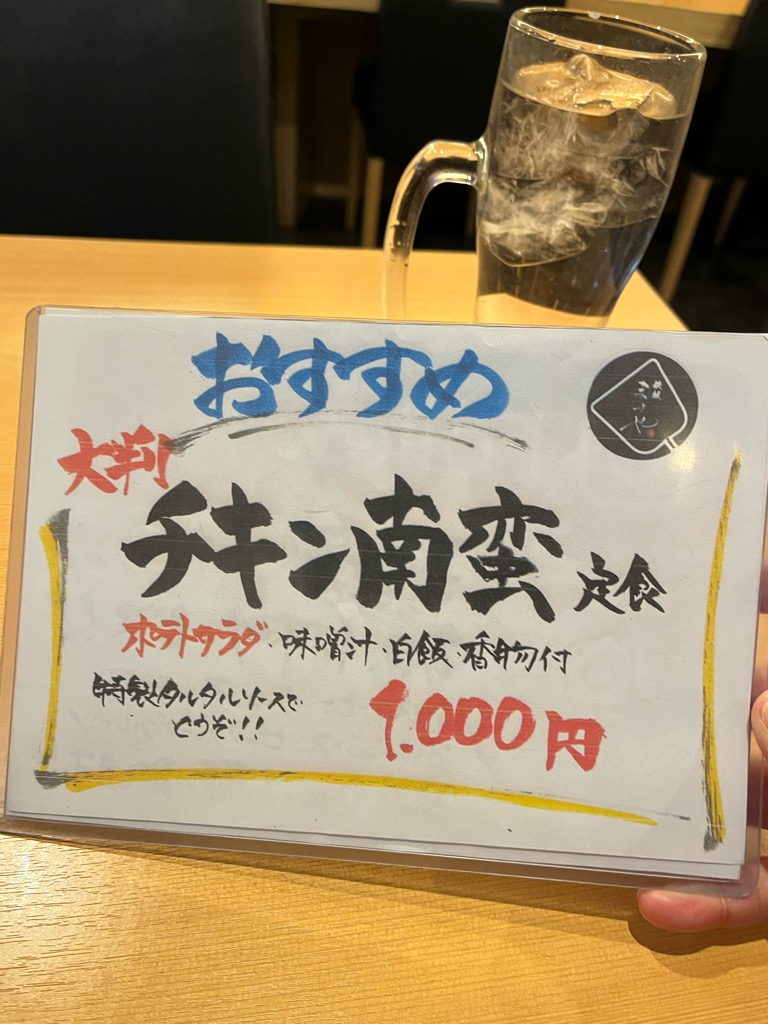 おすすめ
大判
チキン南蛮定食
ポテトサラダ・味噌汁・白飯・香物付
特製タルタルソースで
どうぞ!!
1.000円